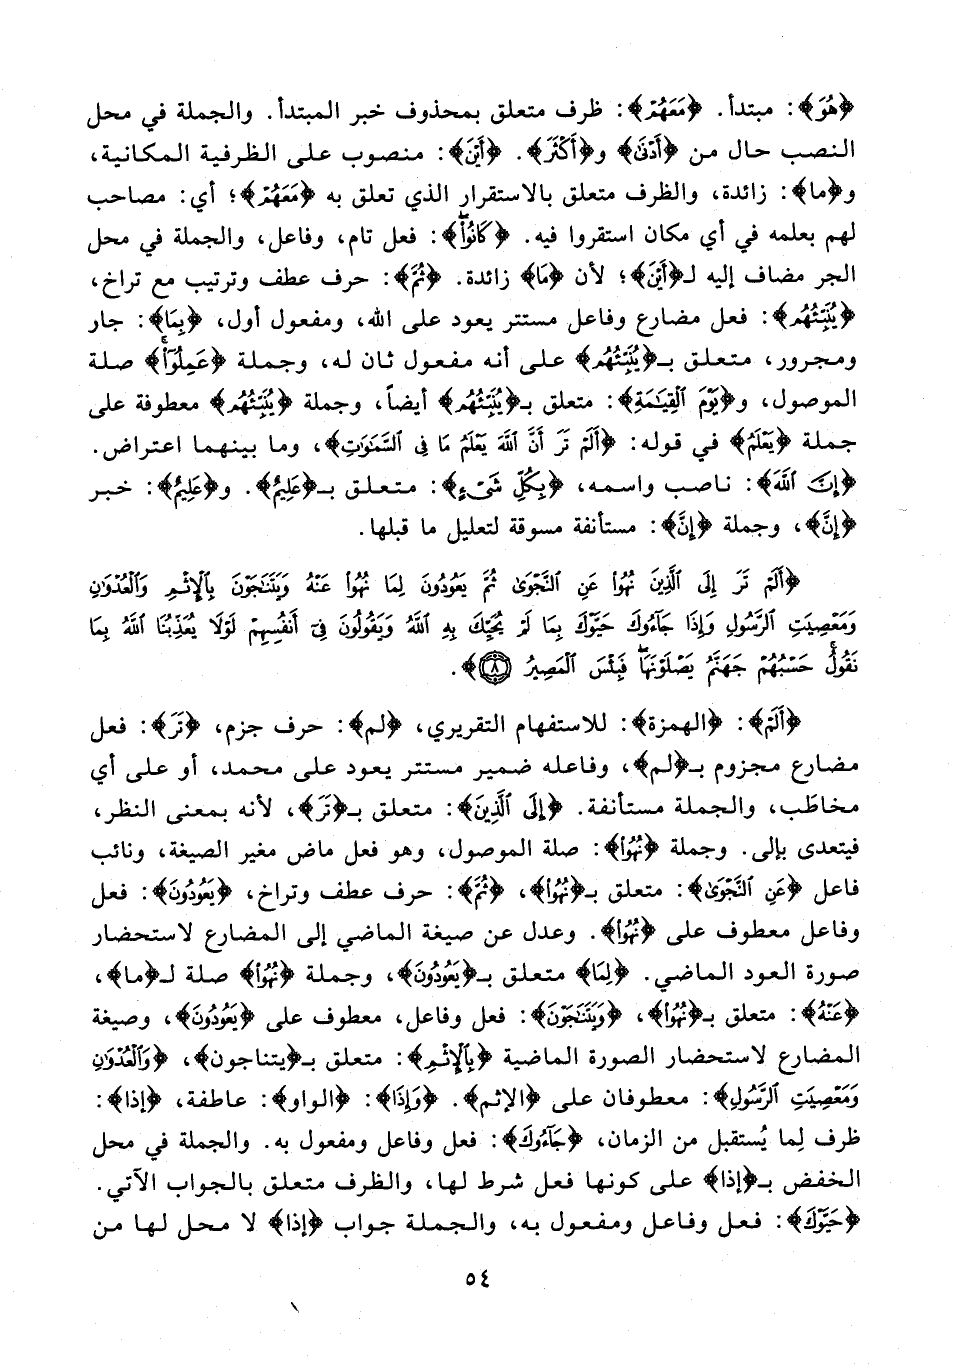 ﴿هُوَ﴾: مبتدأ. ﴿مَعَهُمْ﴾: ظرف متعلق بمحذوف خبر المبتدأ. والجملة في محل
النصب حال من ﴿أَدْنَى﴾ و﴿أَكْثَرَ﴾. ﴿أَيْنَ﴾: منصوب على الظرفية المكانية،
و﴿ما﴾: زائدة، والظرف متعلق بالاستقرار الذي تعلق به ﴿مَعَهُمْ﴾؛ أي: مصاحب
لهم بعلمه في أي مكان استقروا فيه. ﴿كَانُوا۟ۖ﴾: فعل تام، وفاعل، والجملة في محل
الجر مضاف إليه لـ﴿أَيْنَ﴾؛ لأن ﴿مَا﴾ زائدة. ﴿ثُمَّ﴾: حرف عطف وترتيب مع تراخ،
﴿يُنَبِّئُهُم﴾: فعل مضارع وفاعل مستتر يعود على الله، ومفعول أول، ﴿بِمَا﴾: جار
ومجرور، متعلق بـ﴿يُنَبِّئُهُم﴾ على أنه مفعول ثان له، وجملة ﴿عَمِلُوا۟﴾ صلة
الموصول، و﴿يَوْمَ ٱلْقِيَٰمَةِۚ﴾: متعلق بـ﴿يُنَبِّئُهُم﴾ أيضاً، وجملة ﴿يُنَبِّئُهُم﴾ معطوفة على
جملة ﴿يَعْلَمُ﴾ في قوله: ﴿أَلَمْ تَرَ أَنَّ ٱللَّهَ يَعْلَمُ مَا فِى ٱلسَّمَٰوَٰتِ﴾، وما بينهما اعتراض.
﴿إِنَّ ٱللَّهَ﴾: ناصب واسمه، ﴿بِكُلِّ شَىْءٍ﴾: متعلق بـ﴿عَلِيمٌ﴾. و﴿عَلِيمٌ﴾: خبر
﴿إِنَّ﴾، وجملة ﴿إِنَّ﴾: مستأنفة مسوقة لتعليل ما قبلها.
﴿أَلَمْ تَرَ إِلَى ٱلَّذِينَ نُهُوا۟ عَنِ ٱلنَّجْوَىٰ ثُمَّ يَعُودُونَ لِمَا نُهُوا۟ عَنْهُ وَيَتَنَٰجَوْنَ بِٱلْإِثْمِ وَٱلْعُدْوَٰنِ
وَمَعْصِيَتِ ٱلرَّسُولِ وَإِذَا جَآءُوكَ حَيَّوْكَ بِمَا لَمْ يُحَيِّكَ بِهِ ٱللَّهُ وَيَقُولُونَ فِىٓ أَنفُسِهِمْ لَوْلَا يُعَذِّبُنَا ٱللَّهُ بِمَا
نَقُولُۚ حَسْبُهُمْ جَهَنَّمُ يَصْلَوْنَهَاۖ فَبِئْسَ ٱلْمَصِيرُ ٨﴾.
﴿أَلَمْ﴾: ﴿الهمزة﴾: للاستفهام التقريري، ﴿لم﴾: حرف جزم، ﴿تَرَ﴾: فعل
مضارع مجزوم بـ﴿لم﴾، وفاعله ضمير مستتر يعود على محمد، أو على أي
مخاطَب، والجملة مستأنفة. ﴿إِلَى ٱلَّذِينَ﴾: متعلق بـ﴿تَرَ﴾، لأنه بمعنى النظر،
فيتعدى بإلى. وجملة ﴿نُهُوا۟﴾: صلة الموصول، وهو فعل ماض مغير الصيغة، ونائب
فاعل ﴿عَنِ ٱلنَّجْوَىٰ﴾: متعلق بـ﴿نُهُوا۟﴾، ﴿ثُمَّ﴾: حرف عطف وتراخ، ﴿يَعُودُونَ﴾: فعل
وفاعل معطوف على ﴿نُهُوا۟﴾. وعدل عن صيغة الماضي إلى المضارع لاستحضار
صورة العود الماضي. ﴿لِمَا﴾ متعلق بـ﴿يَعُودُونَ﴾، وجملة ﴿نُهُوا۟﴾ صلة لـ﴿ما﴾،
﴿عَنْهُ﴾: متعلق بـ﴿نُهُوا۟﴾، ﴿وَيَتَنَٰجَوْنَ﴾: فعل وفاعل، معطوف على ﴿يَعُودُونَ﴾، وصيغة
المضارع لاستحضار الصورة الماضية ﴿بِٱلْإِثْمِ﴾: متعلق بـ﴿يتناجون﴾، ﴿وَٱلْعُدْوَٰنِ
وَمَعْصِيَتِ ٱلرَّسُولِ﴾: معطوفان على ﴿الإثم﴾. ﴿وَإِذَا﴾: ﴿الواو﴾: عاطفة، ﴿إذا﴾:
ظرف لِما يُستقبل من الزمان، ﴿جَآءُوكَ﴾: فعل وفاعل ومفعول به. والجملة في محل
الخفض بـ﴿إذا﴾ على كونها فعل شرط لها، والظرف متعلق بالجواب الآتي.
﴿حَيَّوْكَ﴾: فعل وفاعل ومفعول به، والجملة جواب ﴿إذا﴾ لا محل لها من
٥٤